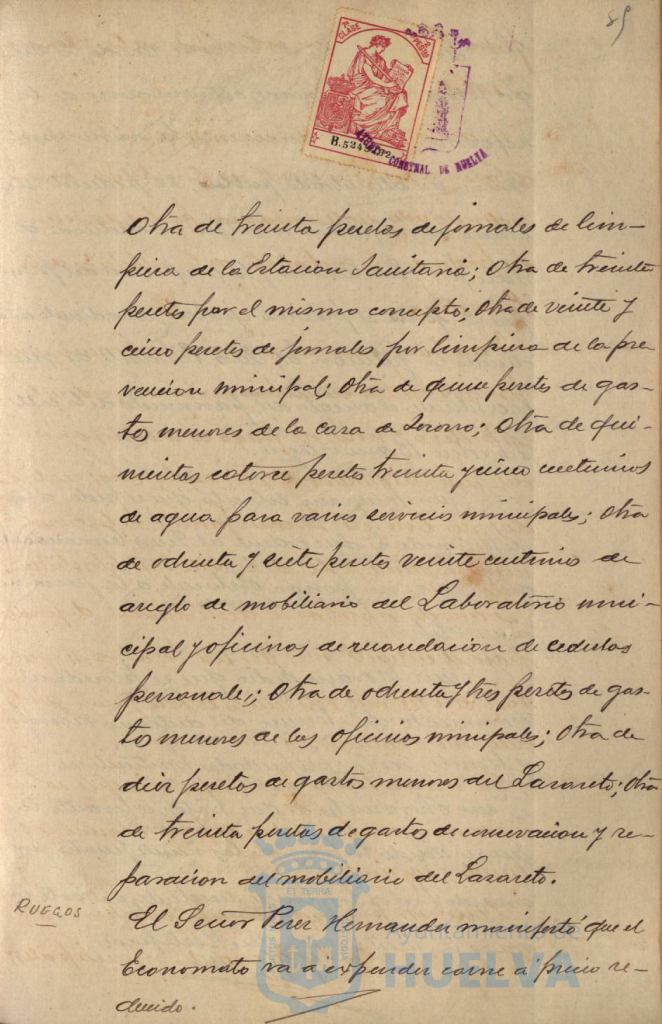 89
7ª CLASE
2 PESETAS
AYUNTO CONSTNAL. DE HUELVA
Otra de treinta pesetas de jornales de lim-
pieza de la Estacion Sanitaria; Otra de treinta
pesetas por el mismo concepto; Otra de veinte y
cinco pesetas de jornales por limpieza de la pre-
vencion municipal; Otra de quince pesetas de gas-
tos menores de la casa de Socorro; Otra de qui-
nientas catorce pesetas treinta y cinco centimos
de agua para varios servicios municipales; Otra
de ochenta y siete pesetas veinte centimos de
areglo de mobiliario del Laboratorio muni-
cipal y oficinas de recaudacion de cedulas
personales; Otra de ochenta y tres pesetas de gas-
tos menores de las oficinas municipales; Otra de
diez pesetas de gastos menores del Lazareto; Otra
de treinta pesetas de gastos de conservacion y re-
paracion del mobiliario del Lazareto.
RUEGOS
El Señor Perez Hernandez manifestó que el
Economato va a expender carne a precio re-
ducido.
Ayuntamiento de
HUELVA